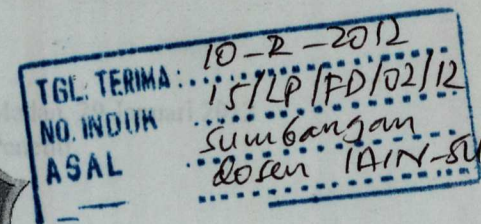 TGL. TERIMA : 10-2-2012
NO. INDUK 15/LP/FD/02/12
ASAL Sumbangan
dosen IAIN-SU